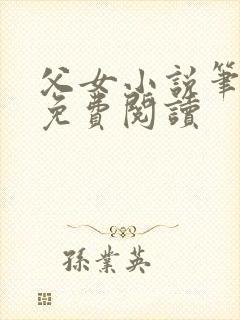 父女小说筆
免費閱讀
孫業英